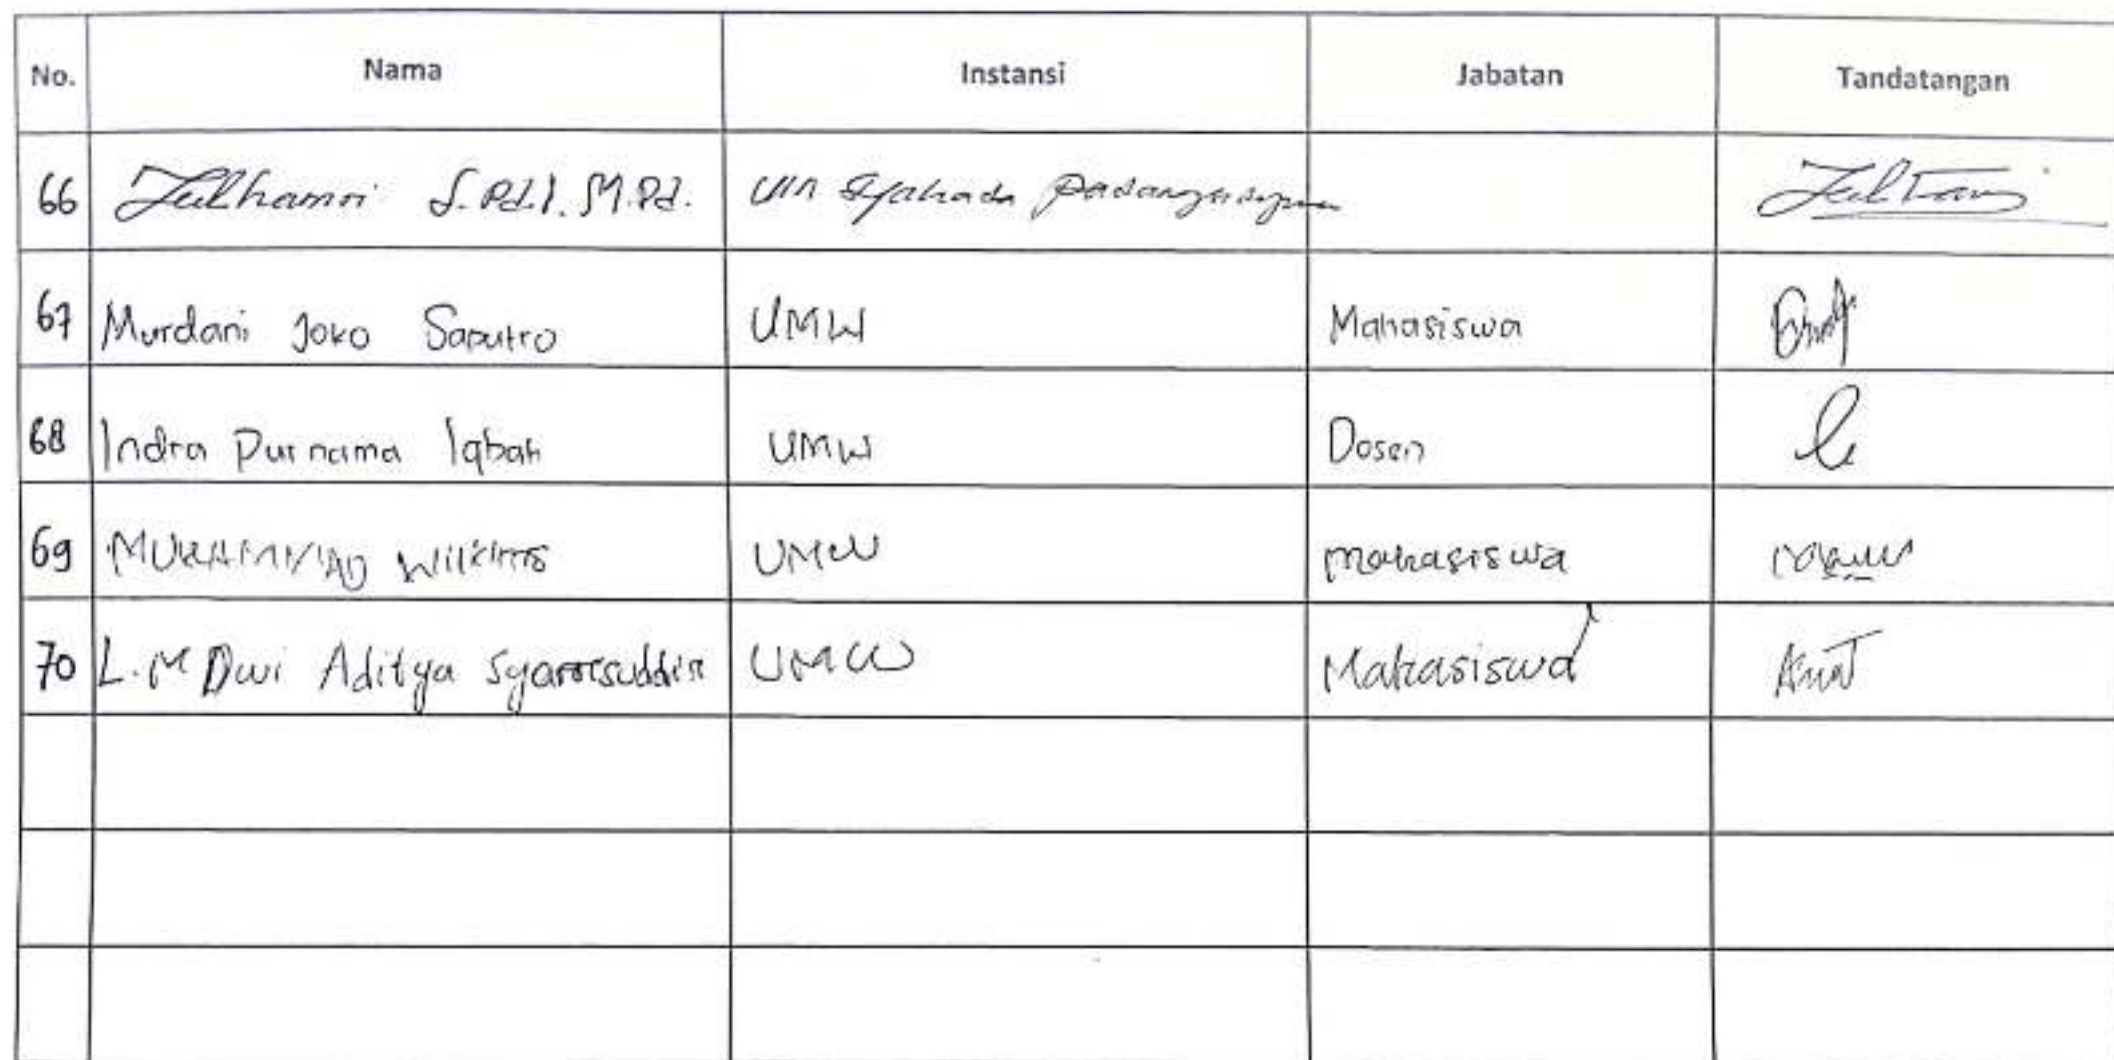 No. Nama Instansi Jabatan Tandatangan
66 Julhamri S.Pd.I. M.Pd. UIN Syahada Padangsidimpuan
67 Murdani Joko Saputro UMW Mahasiswa
68 Indra Purnama Iqbah UMW Dosen
69 MUHAMMAD Wilkins UMW mahasiswa
70 L.M Dwi Aditya Syamsuddin UMW Mahasiswa